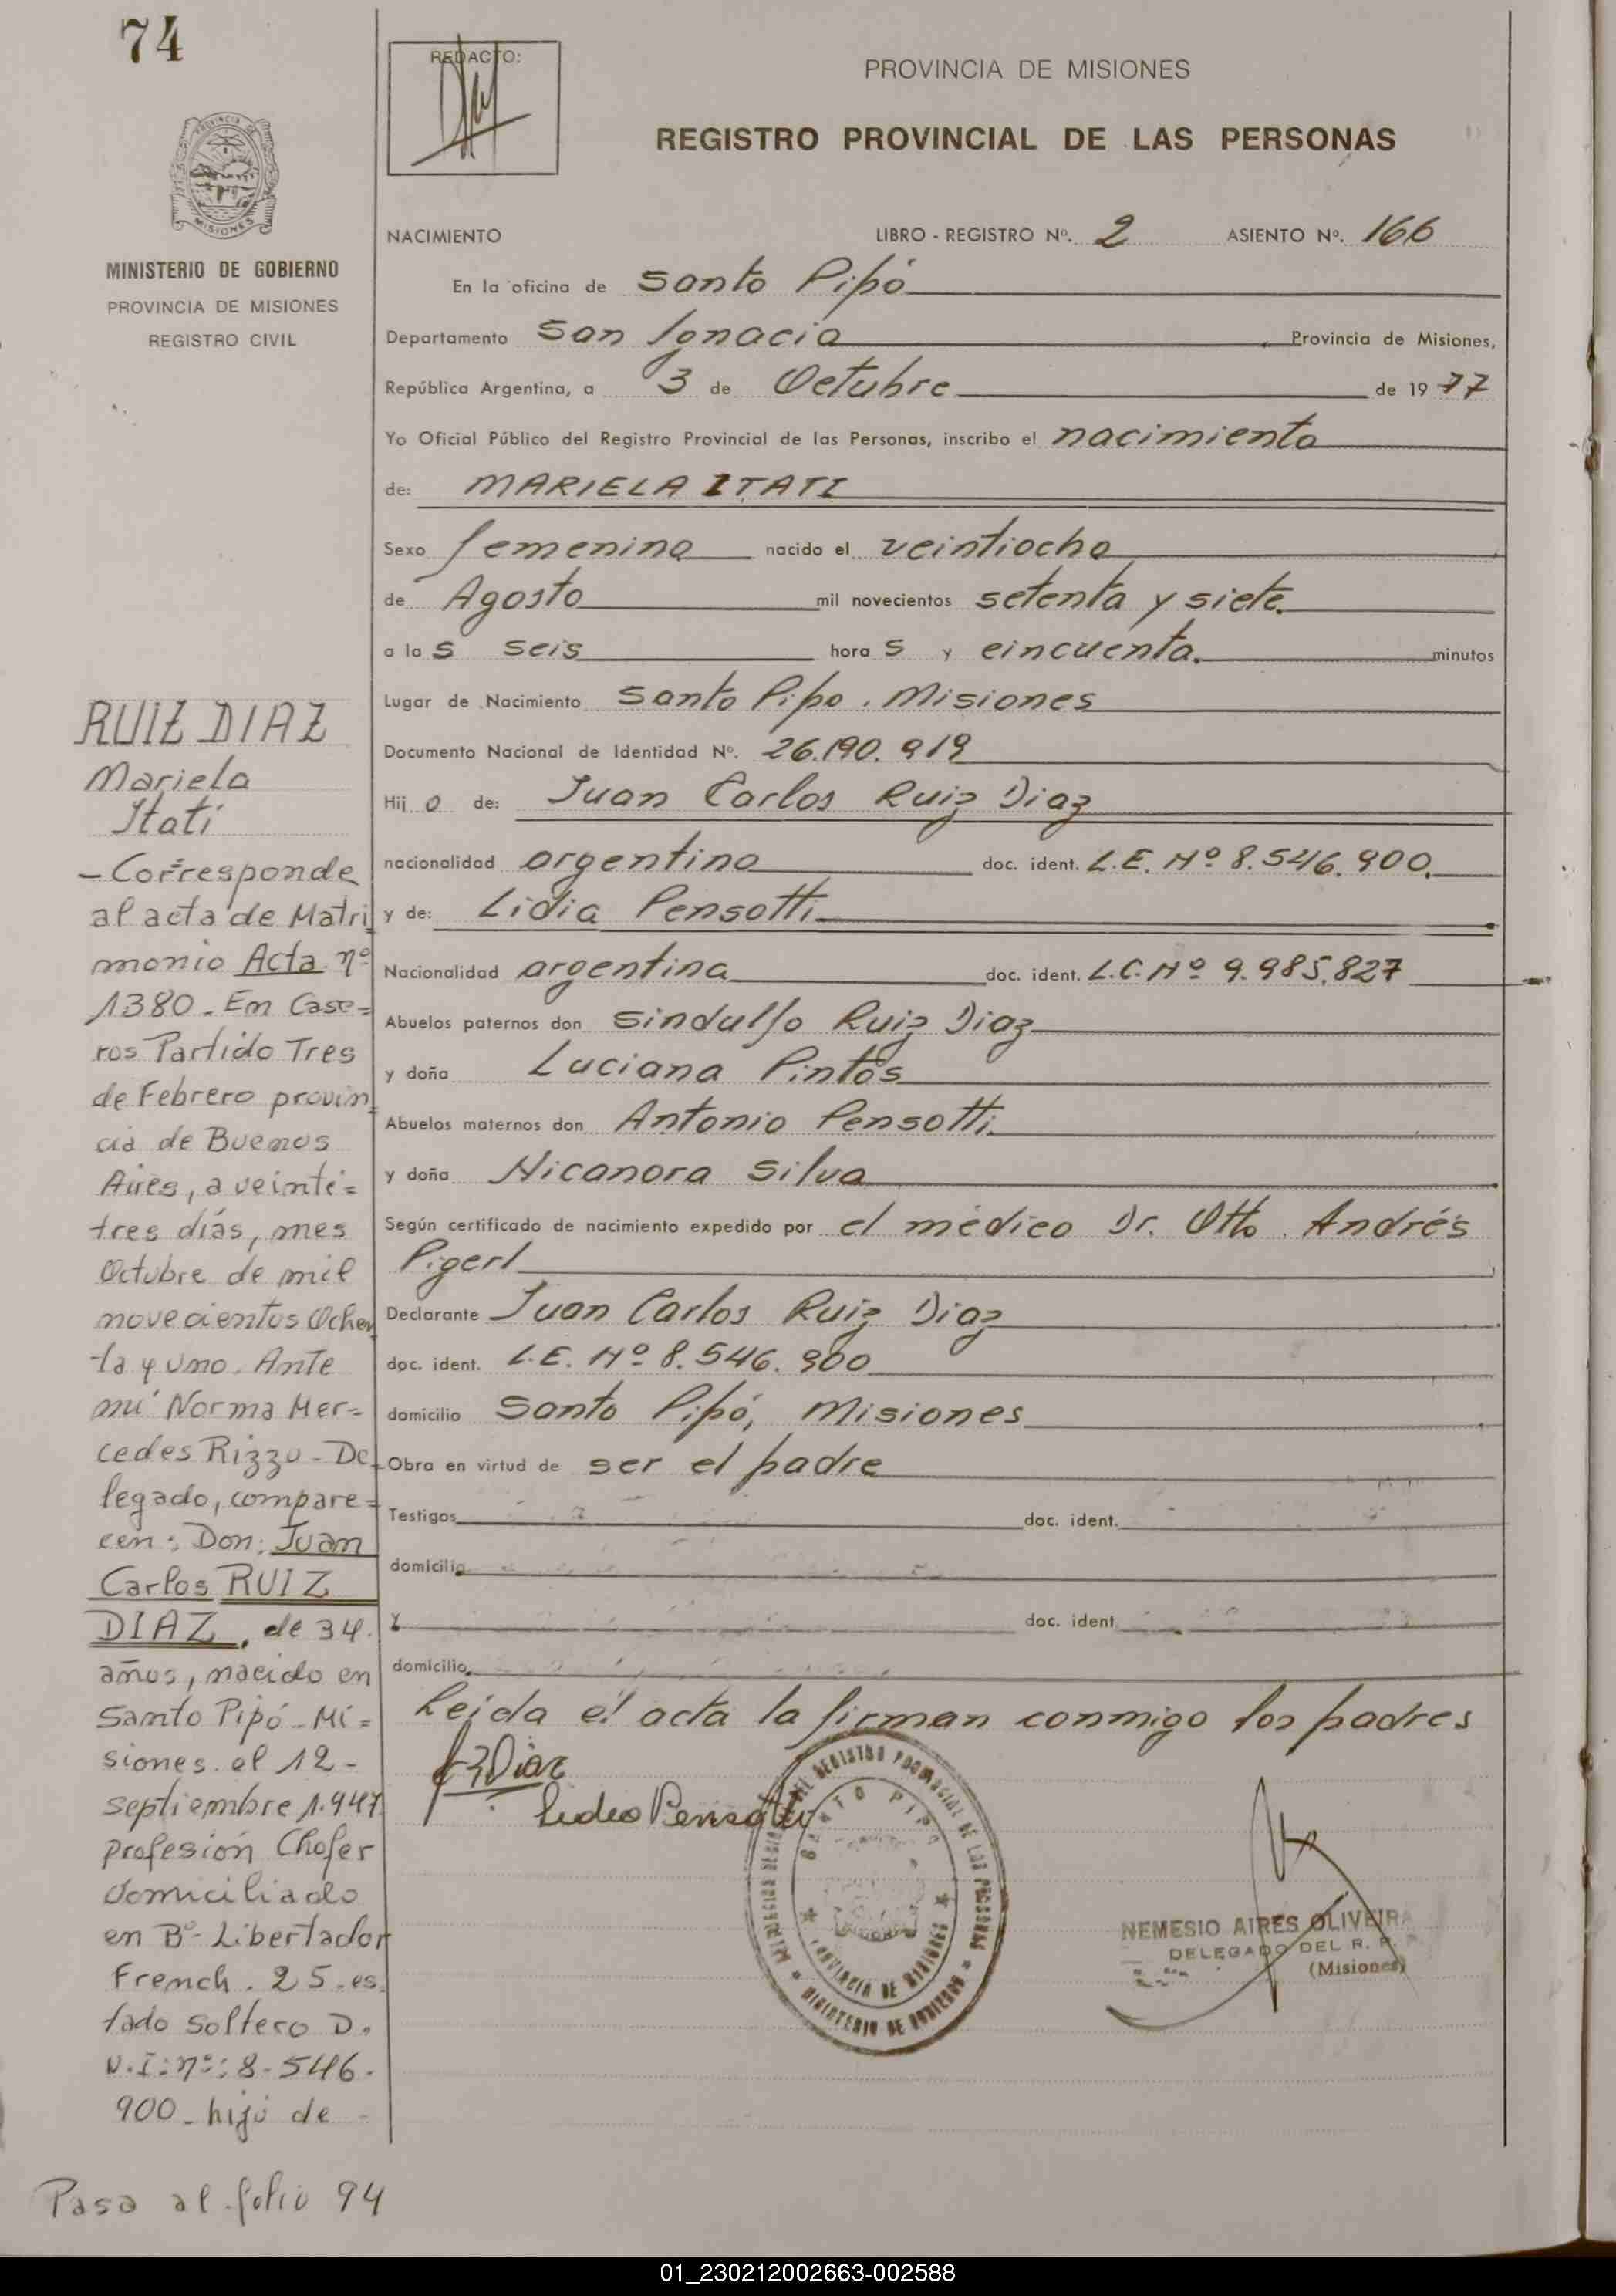 74
REDACTO:
PROVINCIA DE MISIONES
REGISTRO PROVINCIAL DE LAS PERSONAS
MISIONES
MINISTERIO DE GOBIERNO
PROVINCIA DE MISIONES
REGISTRO CIVIL
NACIMIENTO LIBRO - REGISTRO Nº. 2 ASIENTO Nº. 166
En la oficina de Santo Pipó
Departamento San Ignacio, Provincia de Misiones,
República Argentina, a 3 de Octubre de 1977
Yo Oficial Público del Registro Provincial de las Personas, inscribo el nacimiento
de: MARIELA ITATI
Sexo femenino nacido el veintiocho
de Agosto mil novecientos setenta y siete.
a las seis horas y cincuenta. minutos
Lugar de Nacimiento Santo Pipo. Misiones
Documento Nacional de Identidad Nº. 26.190.919
Hij a de: Juan Carlos Ruiz Diaz
nacionalidad argentino doc. ident. L.E. Nº 8.546.900.
y de: Lidia Pensotti
Nacionalidad argentina doc. ident. L.C. Nº 9.985.827
Abuelos paternos don Sindulfo Ruiz Diaz
y doña Luciana Pintos
Abuelos maternos don Antonio Pensotti.
y doña Nicanora Silva
Según certificado de nacimiento expedido por el médico Dr. Otto Andrés
Pigerl
Declarante Juan Carlos Ruiz Diaz
doc. ident. L.E. Nº 8.546.900
domicilio Santo Pipó, Misiones
Obra en virtud de ser el padre
Testigos doc. ident.
domicilio
y doc. ident
domicilio
Leída el acta la firman conmigo los padres
Lidia Pensotti
SANTO PIPO
PROVINCIA DE MISIONES
MINISTERIO DE GOBIERNO
NEMESIO AIRES OLIVEIRA
DELEGADO DEL R. P.
(Misiones)
RUIZ DIAZ
Mariela
Itatí
- Corresponde
al acta de Matri
monio Acta nº
1380 - En Case=
ros Partido Tres
de Febrero provin=
cia de Buenos
Aires, a veinti=
tres días, mes
Octubre de mil
novecientos Ochen
ta y uno. Ante
mí Norma Mer=
cedes Rizzo - De
legado, compare=
cen: Don: Juan
Carlos RUIZ
DIAZ, de 34
años, nacido en
Santo Pipó - Mi=
siones. el 12 -
septiembre 1.947
profesión Chofer
domiciliado
en Bº Libertador
French. 25. es.
tado soltero D.
N.I: nº: 8-546.
900 - hijo de -
Pasa al folio 94
01_230212002663-002588